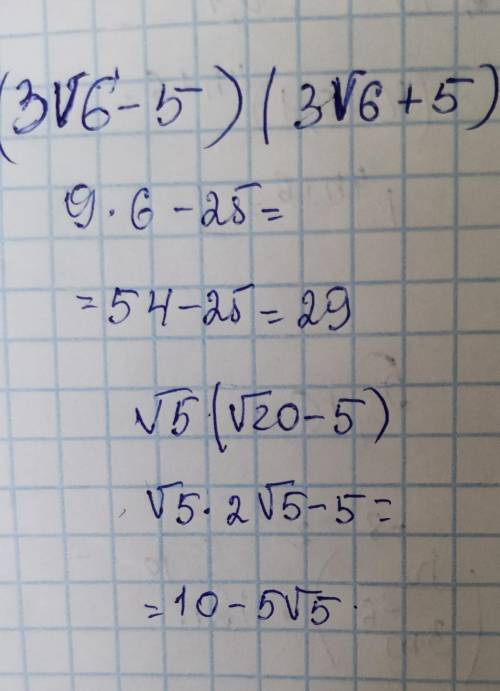 (3√6-5)(3√6+5)
9·6-25=
=54-25=29
√5·(√20-5)
√5·2√5-5=
=10-5√5.